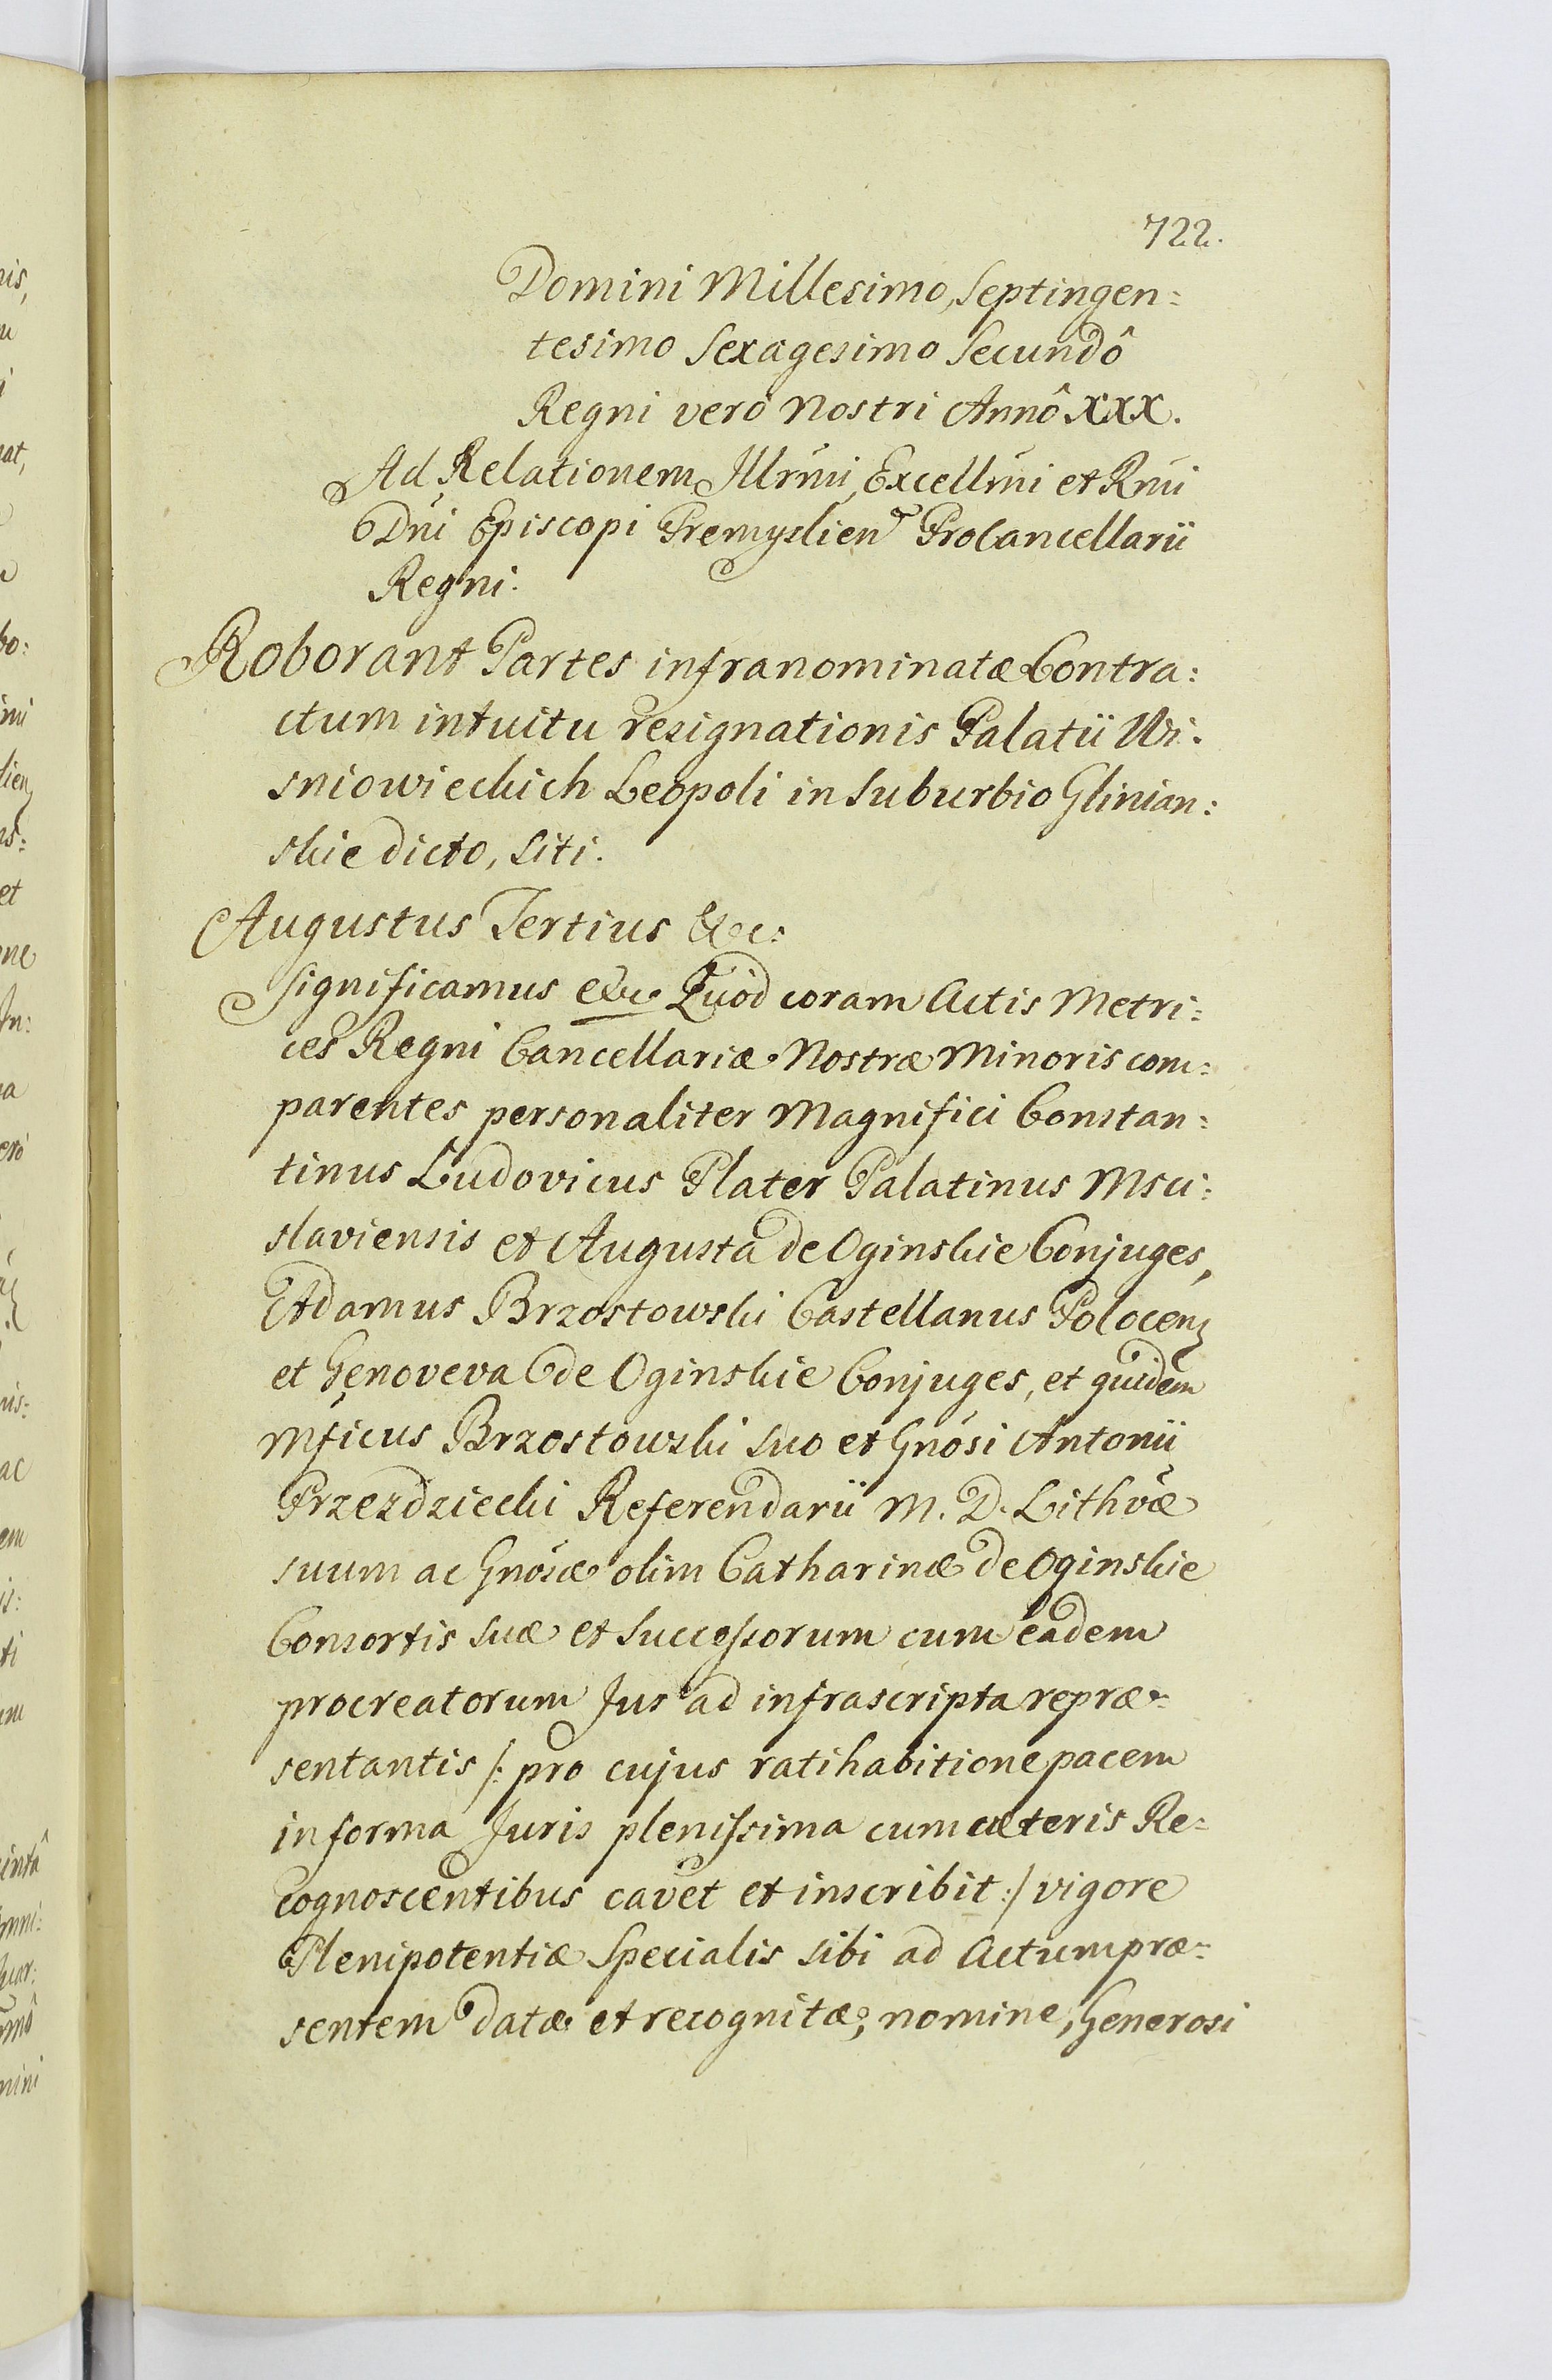 722.
Domini Millesimo, Septingen:
tesimo Sexagesimo Secundô
Regni verò Nostri Annô XXX.
Ad Relationem Illrmi, Excellmi et Rmi
Dni Episcopi Premyslien ProCancellarii
Regni.
Roborant Partes infranominatæ Contra:
ctum intuitu resignationis Palatii Wi:
sniowieckich Leopoli in Suburbio Glinian:
skie dicto, siti.
Augustus Tertius &c:
Significamus &c. Quòd coram Actis Metri:
ces Regni Cancellariæ Nostræ Minoris com:
parentes personaliter Magnifici Constan:
tinus Ludovicus Plater Palatinus Msci:
slaviensis et Augusta de Oginskie Conjuges,
Adamus Brzostowski Castellanus Polocen
et Genoveva de Oginskie Conjuges, et quidem
Mficus Brzostowski suo et Gnosi Antonii
Przezdziecki Referendarii M. D. Lithvæ
suum ac Gnosæ olim Catharinæ de Oginskie
Consortis suæ et Successorum cum eadem
procreatorum Jus ad infrascripta repræ:
sentantis /: pro cujus ratihabitione pacem
in forma Juris plenissima cum cæteris Re:
cognoscentibus cavet et inscribit :/ vigore
Plenipotentiæ Specialis sibi ad Actum præ:
sentem datæ et recognitæ, nomine, Generosi